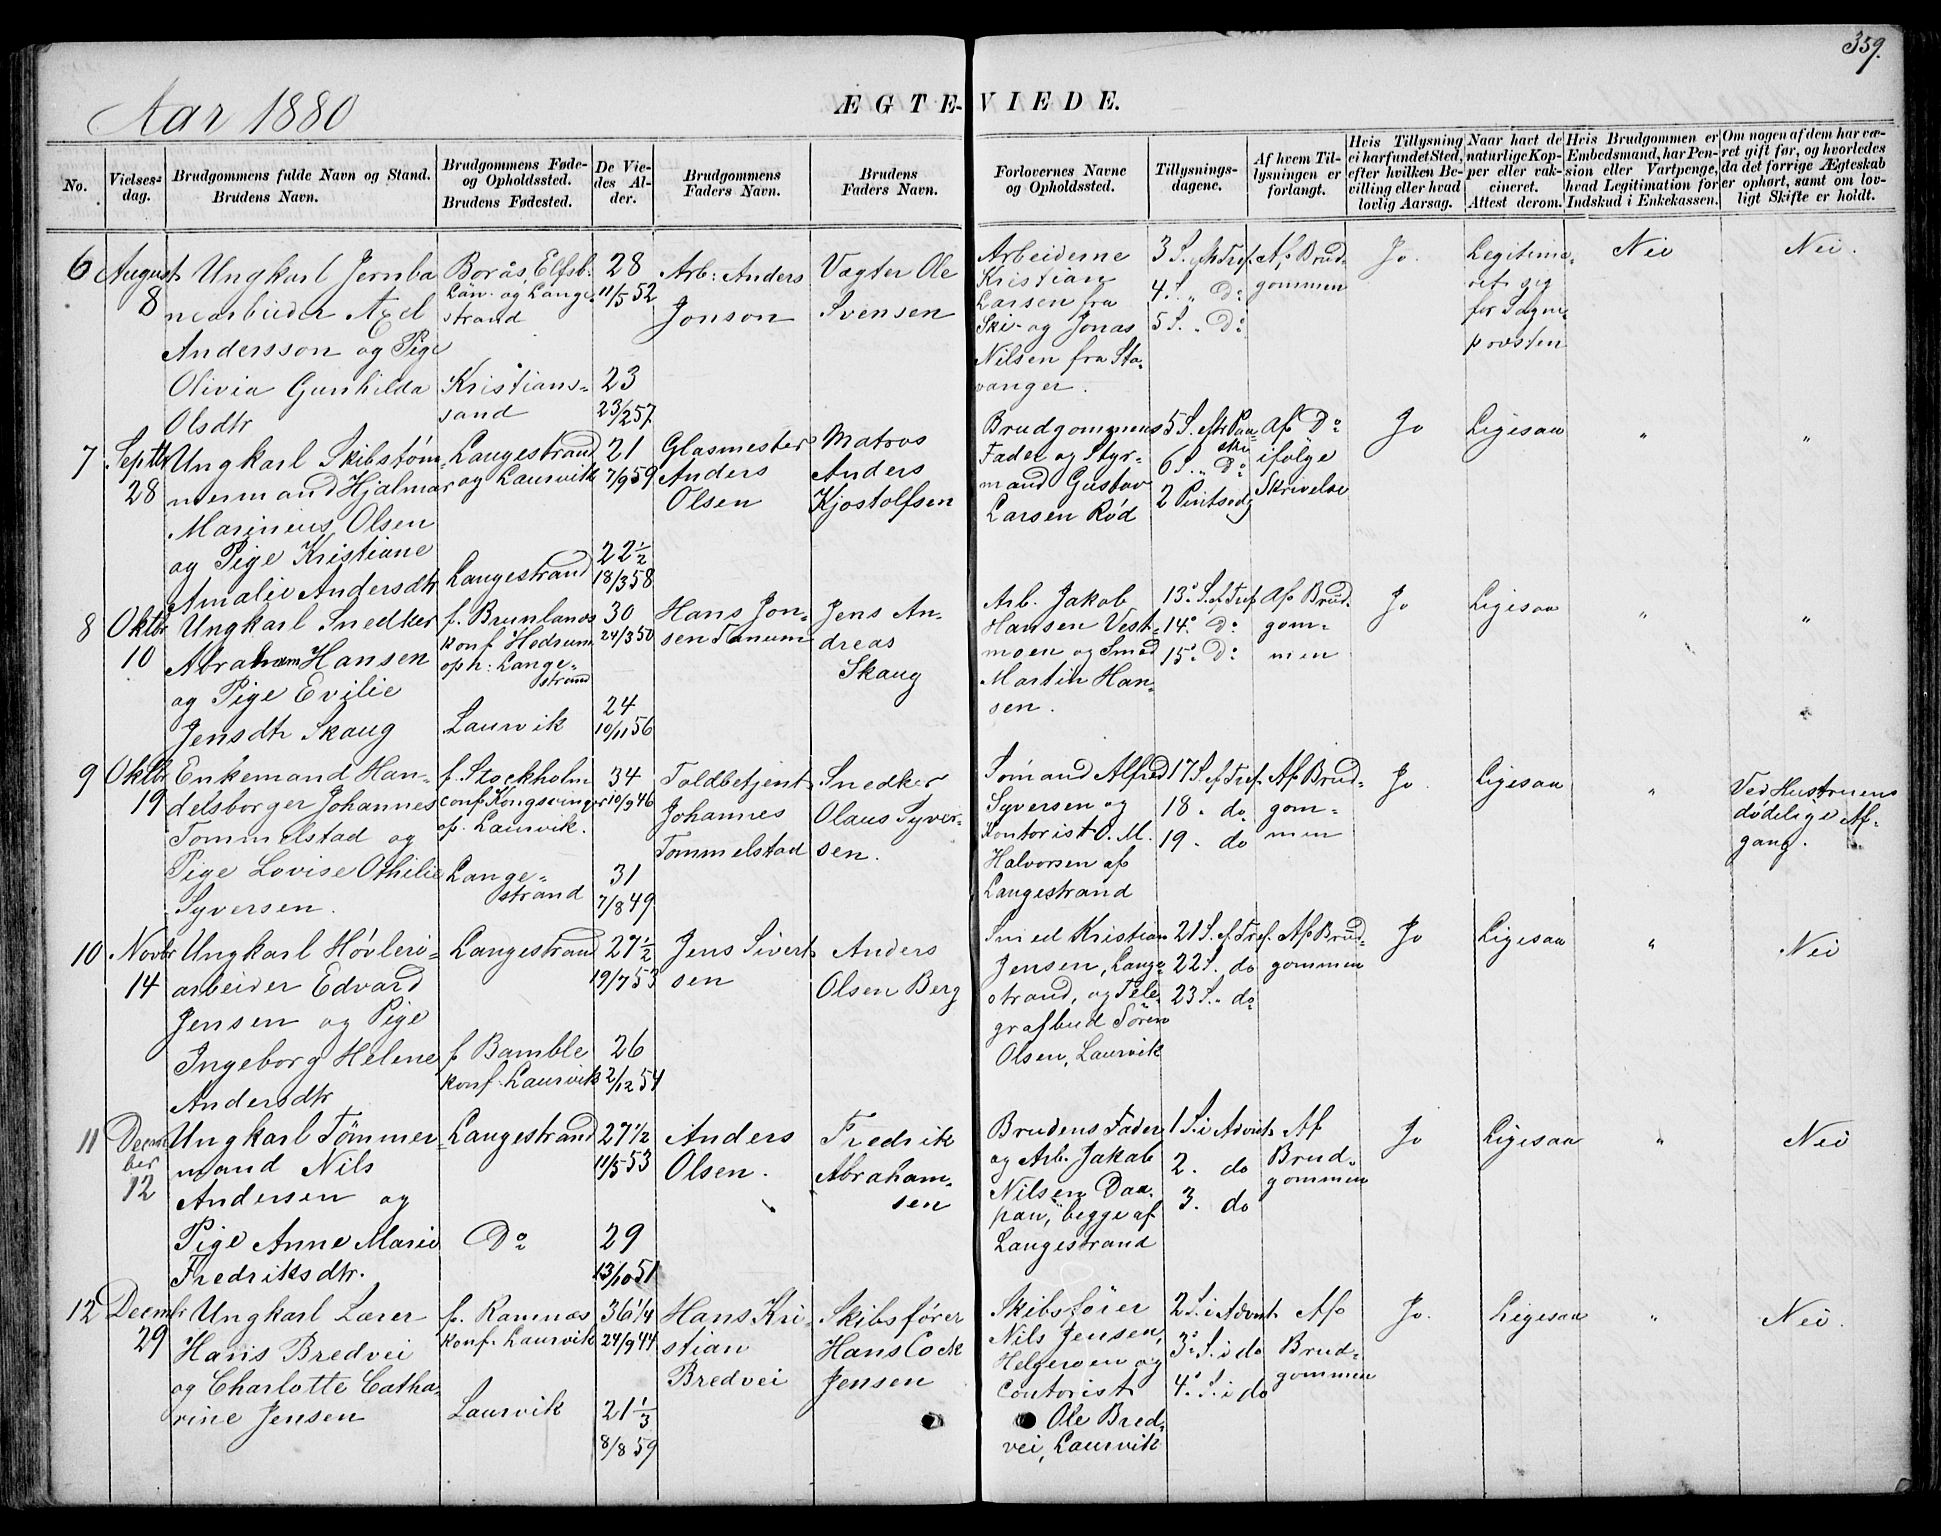 359.
Aar 1880
ÆGTE-VIEDE.
No.
Vielses-
dag.
Brudgommens fulde Navn og Stand.
Brudens Navn.
Brudgommens Føde-
og Opholdssted.
Brudens Fødested.
De Vie-
des Al-
der.
Brudgommens
Faders Navn.
Brudens
Faders Navn.
Forlovernes Navne
og Opholdssted.
Tillysnings-
dagene.
Af hvem Til-
lysningen er
forlangt.
Hvis Tillysning
ei har fundet Sted,
efter hvilken Be-
villing eller hvad
lovlig Aarsag.
Naar havt de
naturlige Kop-
per eller vak-
cineret.
Attest derom.
Hvis Brudgommen er
Embedsmand, har Pen-
sion eller Vartpenge,
hvad Legitimation for
Indskud i Enkekassen.
Om nogen af dem har væ-
ret gift før, og hvorledes
da det forrige Ægteskab
er ophørt, samt om lov-
ligt Skifte er holdt.
6
August
8
Ungkarl Jernba
nearbeider Axel
Andersson og Pige
Olivia Gunhilda
Olsdtr
Borås, Elfsb:
Län- og Lange-
strand
Kristians-
sand
28
11/5 52
23
23/2 57
Arb: Anders
Jonson
Vægter Ole
Svensen
Arbeiderne
Kristian
Larsen fra
Ski- og Jonas
Nilsen fra Sta-
vanger.
3 S. eft Tref.
4 S. " Do
5 S. " Do
Af Brud-
gommen
Jo.
Legitime-
ret sig
for Sogne-
provsten
Nei
Nei.
7
Septb
28
Ungkarl Skibstøm-
mermand Hjalmar
Marineus Olsen
og Pige Kristiane
Amalie Andersdtr
Langestrand
og Laurvik
Langestrand
21
7/9 59
22 1/2
18/3 58
Glasmester
Anders
Olsen
Matros
Anders
Kjostolfsen
Brudgommens
Fader og Styr-
mand Gustav
Larsen Rød
5 S. eft Paa
ske
6 S. " Do
2 Pintsedg
Af Do
ifølge
Skrivelse
Jo
Ligesaa
"
"
8
Oktbr
10
Ungkarl Snedker
Abraham Hansen
og Pige Evilie
Jensdtr Skaug
f. Brunlanes
konf Hedrum
oph: Lange-
strand
Laurvik
30
24/3 50
24
10/11 56
Hans Jon-
sen Tanum
Jens An-
dreas
Skaug
Arb. Jakob
Hansen Vest-
moen og Smed
Martin Han-
sen.
13. S. ef Tref
14. Do
15. Do
Af Brud-
gom-
men
Jo
Ligesaa
"
"
9
Oktbr
19
Enkemand Han-
delsborger Johannes
Tommelstad og
Pige Lovise Othilie
Syversen.
f. Stockholm
conf. Kongsvinger
op. Laurvik.
Lange-
strand
34
10/9 46
31
7/8 49
Toldbetjent
Johannes
Tommelstad
Snedker
Olaus Syver-
sen.
Sømand Alfred
Syversen og
Kontorist O. M.
Halvorsen af
Langestrand
17 S. ef Tref.
18 " do
19. do
Af Brud-
gom-
men
Jo.
Ligesaa
"
Ved Hustruens
dødelige Af-
gang.
10
Novbr
14
Ungkarl Høvleri-
arbeider Edvard
Jensen og Pige
Ingeborg Helene
Andersdtr
Langestrand
f Bamble
konf. Laurvik
27 1/2
19/7 53
26
2/12 54
Jens Sivert
sen
Anders
Olsen Berg
Smed Kristian
Jensen, Lange-
strand, og Tele-
grafbud Søren
Olsen, Laurvik
21 S. ef. Tref.
22 S. do
23 S. " do
Af Brud-
gommen
Jo
Ligesaa
"
Nei
11
Decem
ber
12
Ungkarl Tømmer
mand Nils
Andersen og
Pige Anne Marie
Fredriksdtr.
Langestrand
Do
27 1/2
11/5 53
29
13/10 51
Anders
Olsen.
Fredrik
Abraham-
sen
Brudens Fader
og Arb. Jakob
Nilsen Daa-
pan, begge af
Langestrand
1 S. i Advnt
2. do
3. do
Af
Brud-
gommen
Jo
Ligesaa
"
Nei
12
Decembr
29
Ungkarl Lærer
Hans Bredvei
og Charlotte Catha-
rine Jensen
f. Ramnæs
konf. Laurvik
Laurvik
36 1/4
24/9 44
21 1/3
8/8 59
Hans Kri-
stian
Bredvei
Skibsfører
Hans Cock
Jensen
Skibsfører
Nils Jensen,
Helgeroen og
Contorist
Ole Bred-
vei, Laurvik
2 S. i Advnt
3. S. i do
4. S. i do
Af
Brud-
gommen
Jo.
Ligesaa
"
Nei.